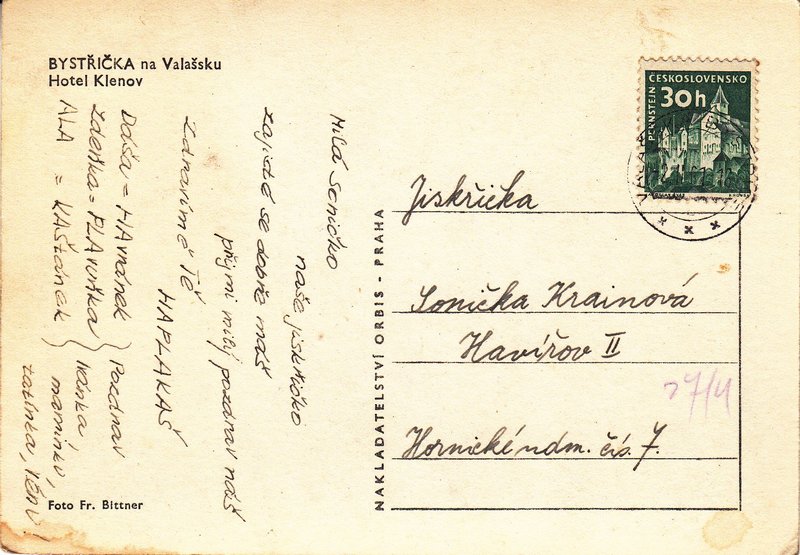 BYSTŘIČKA na Valašsku
Hotel Klenov
Milá Soničko
naše jiskřičko
zajisté se dobře máš
přijmi milý pozdrav náš
Zdravíme Tě
HAPLAKAŠ
Dáša = HAvránek
Zdeňka = PLAvuňka
ALA = KAŠtánek
Pozdrav
Ivánka,
maminku,
tatínka,
Foto Fr. Bittner
NAKLADATELSTVÍ ORBIS - PRAHA
ČESKOSLOVENSKO
30h
PERNŠTEJN
Jiskřička
Sonička Krainová
Havířov II
27/4
Hornické nám. čís. 7.